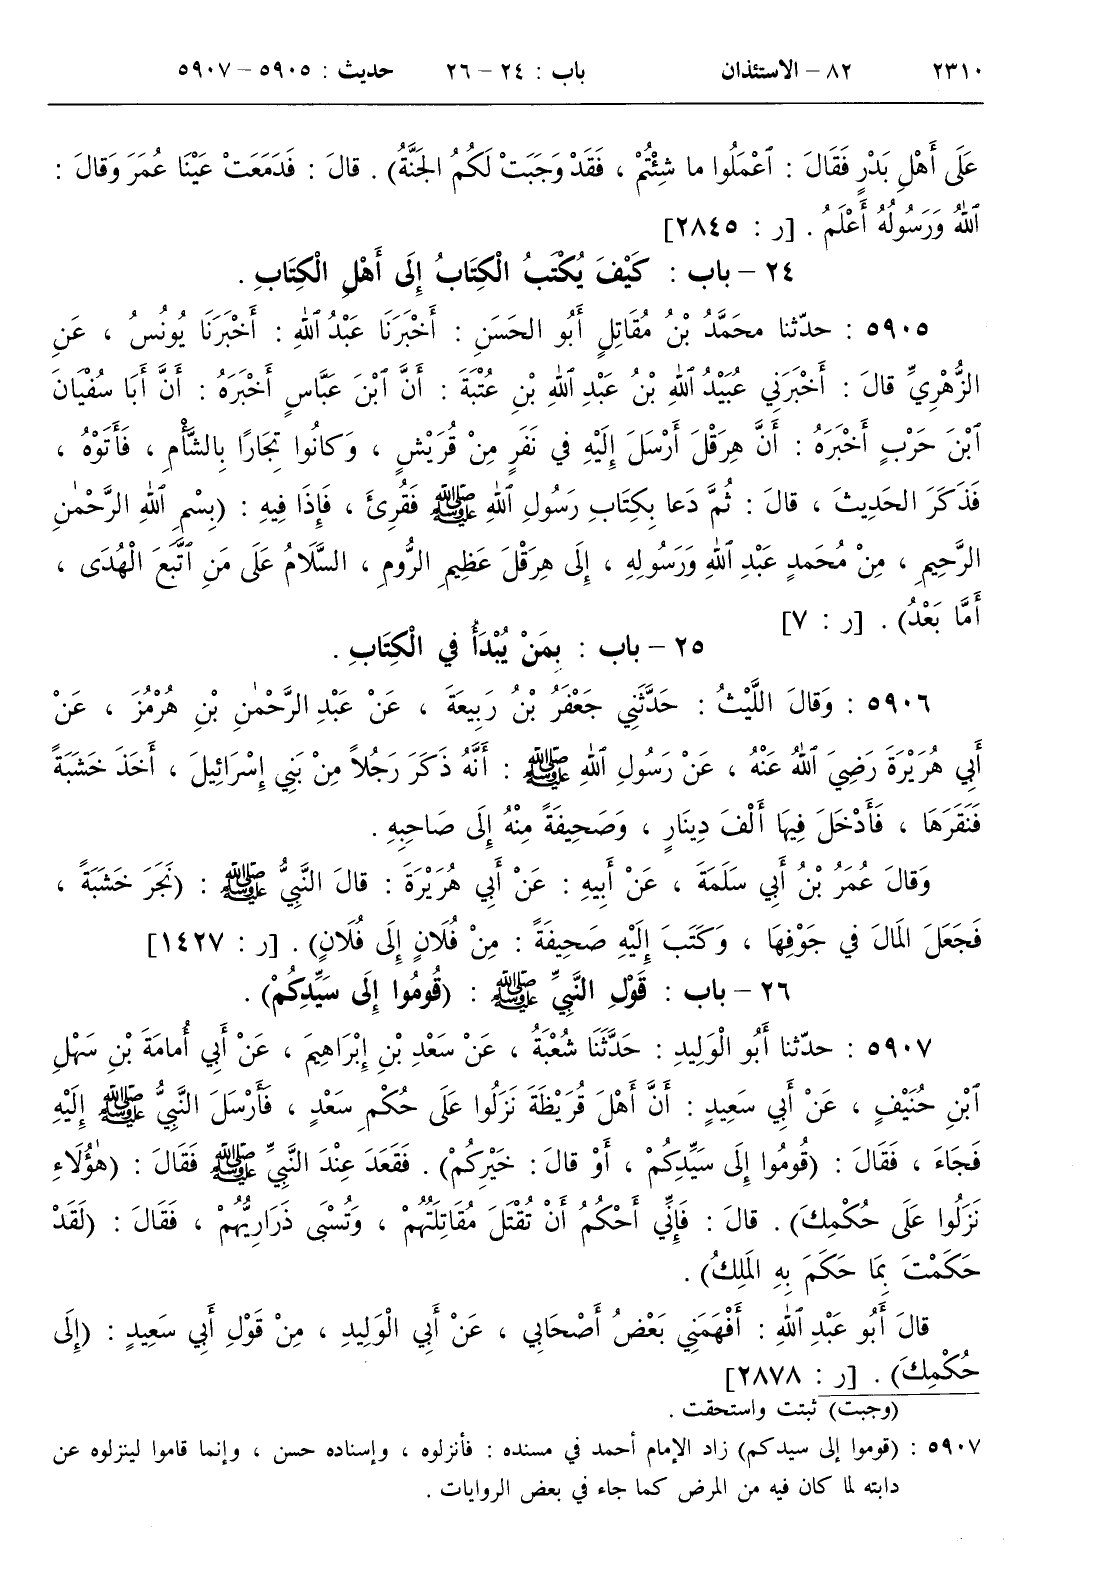 ٢٣١٠ ٨٢ – الاستئذان باب : ٢٤ – ٢٦ حديث : ٥٩٠٥ – ٥٩٠٧
عَلَى أَهْلِ بَدْرٍ فَقَالَ : ٱعْمَلُوا ما شِئْتُمْ ، فَقَدْ وَجَبَتْ لَكُمُ الجَنَّةُ) . قالَ : فَدَمَعَتْ عَيْنَا عُمَرَ وَقالَ :
ٱللهُ وَرَسُولُهُ أَعْلَمُ . [ر : ٢٨٤٥]
٢٤ – باب : كَيْفَ يُكْتَبُ الْكِتَابُ إِلَى أَهْلِ الْكِتَابِ .
٥٩٠٥ : حدّثنا محمَّدُ بْنُ مُقَاتِلٍ أَبُو الحَسَنِ : أَخْبَرَنَا عَبْدُ ٱللهِ : أَخْبَرَنَا يُونُسُ ، عَنِ
الزُّهْرِيِّ قالَ : أَخْبَرَنِي عُبَيْدُ ٱللهِ بْنُ عَبْدِ ٱللهِ بْنِ عُتْبَةَ : أَنَّ ٱبْنَ عَبَّاسٍ أَخْبَرَهُ : أَنَّ أَبَا سُفْيَانَ
ٱبْنَ حَرْبٍ أَخْبَرَهُ : أَنَّ هِرَقْلَ أَرْسَلَ إِلَيْهِ في نَفَرٍ مِنْ قُرَيْشٍ ، وَكانُوا تِجَارًا بِالشَّأْمِ ، فَأَتَوْهُ ،
فَذَكَرَ الحَدِيثَ ، قالَ : ثُمَّ دَعا بِكِتَابِ رَسُولِ ٱللهِ ﷺ فَقُرِئَ ، فَإِذَا فِيهِ : (بِسْمِ ٱللهِ الرَّحْمٰنِ
الرَّحِيمِ ، مِنْ مُحَمدٍ عَبْدِ ٱللهِ وَرَسُولِهِ ، إِلَى هِرَقْلَ عَظِيمِ الرُّومِ ، السَّلَامُ عَلَى مَنِ ٱتَّبَعَ الْهُدَى ،
أَمَّا بَعْدُ) . [ر : ٧]
٢٥ – باب : بِمَنْ يُبْدَأُ في الْكِتَابِ .
٥٩٠٦ : وَقالَ اللَّيْثُ : حَدَّثَنِي جَعْفَرُ بْنُ رَبِيعَةَ ، عَنْ عَبْدِ الرَّحْمٰنِ بْنِ هُرْمُزَ ، عَنْ
أَبِي هُرَيْرَةَ رَضِيَ ٱللهُ عَنْهُ ، عَنْ رَسُولِ ٱللهِ ﷺ : أَنَّهُ ذَكَرَ رَجُلاً مِنْ بَنِي إِسْرَائِيلَ ، أَخَذَ خَشَبَةً
فَنَقَرَهَا ، فَأَدْخَلَ فِيهَا أَلْفَ دِينَارٍ ، وَصَحِيفَةً مِنْهُ إِلَى صَاحِبِهِ .
وَقالَ عُمَرُ بْنُ أَبِي سَلَمَةَ ، عَنْ أَبِيهِ : عَنْ أَبِي هُرَيْرَةَ : قالَ النَّبِيُّ ﷺ : (نَجَرَ خَشَبَةً ،
فَجَعَلَ المَالَ في جَوْفِهَا ، وَكَتَبَ إِلَيْهِ صَحِيفَةً : مِنْ فُلَانٍ إِلَى فُلَانٍ) . [ر : ١٤٢٧]
٢٦ – باب : قَوْلِ النَّبِيِّ ﷺ : (قُومُوا إِلَى سَيِّدِكُمْ) .
٥٩٠٧ : حدّثنا أَبُو الْوَلِيدِ : حَدَّثَنَا شُعْبَةُ ، عَنْ سَعْدِ بْنِ إِبْرَاهِيمَ ، عَنْ أَبِي أُمامَةَ بْنِ سَهْلِ
ٱبْنِ حُنَيْفٍ ، عَنْ أَبِي سَعِيدٍ : أَنَّ أَهْلَ قُرَيْظَةَ نَزَلُوا عَلَى حُكْمِ سَعْدٍ ، فَأَرْسَلَ النَّبِيُّ ﷺ إِلَيْهِ
فَجَاءَ ، فَقَالَ : (قُومُوا إِلَى سَيِّدِكُمْ ، أَوْ قالَ : خَيْرِكُمْ) . فَقَعَدَ عِنْدَ النَّبِيِّ ﷺ فَقَالَ : (هٰؤُلَاءِ
نَزَلُوا عَلَى حُكْمِكَ) . قالَ : فَإِنِّي أَحْكُمُ أَنْ تُقْتَلَ مُقَاتِلَتُهُمْ ، وَتُسْبَى ذَرَارِيُّهُمْ ، فَقَالَ : (لَقَدْ
حَكَمْتَ بِمَا حَكَمَ بِهِ المَلِكُ) .
قالَ أَبُو عَبْدِ ٱللهِ : أَفْهَمَنِي بَعْضُ أَصْحَابِي ، عَنْ أَبِي الْوَلِيدِ ، مِنْ قَوْلِ أَبِي سَعِيدٍ : (إِلَى
حُكْمِكَ) . [ر : ٢٨٧٨]
(وجبت) ثبتت واستحقت .
٥٩٠٧ : (قوموا إلى سيدكم) زاد الإمام أحمد في مسنده : فأنزلوه ، وإسناده حسن ، وإنما قاموا لينزلوه عن
دابته لما كان فيه من المرض كما جاء في بعض الروايات .